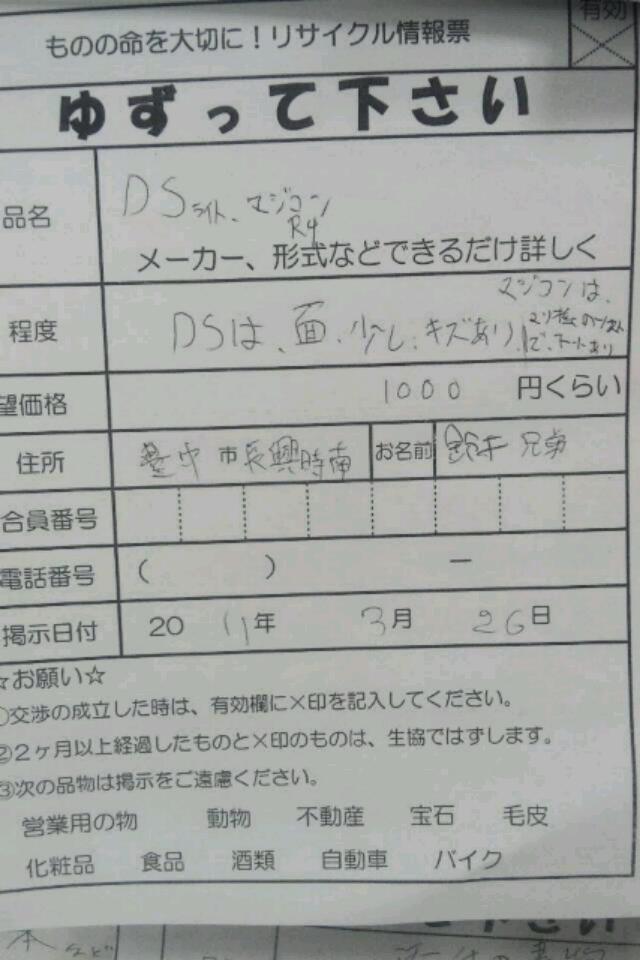 ものの命を大切に！リサイクル情報票
有効
ゆずって下さい
品名
DSライト、マジコン
R4
メーカー、形式などできるだけ詳しく
程度
DSは、面、少し、キズあり、
マジコンは、
で、 あり
望価格
1000 円くらい
住所
臺中 市長興時南
お名前
鈴木 兄弟
合員番号
電話番号
( ) ー
掲示日付
2011年 3月 26日
☆お願い☆
①交渉の成立した時は、有効欄に×印を記入してください。
②２ヶ月以上経過したものと×印のものは、生協ではずします。
③次の品物は掲示をご遠慮ください。
営業用の物 動物 不動産 宝石 毛皮
化粧品 食品 酒類 自動車 バイク
下さい
本 など